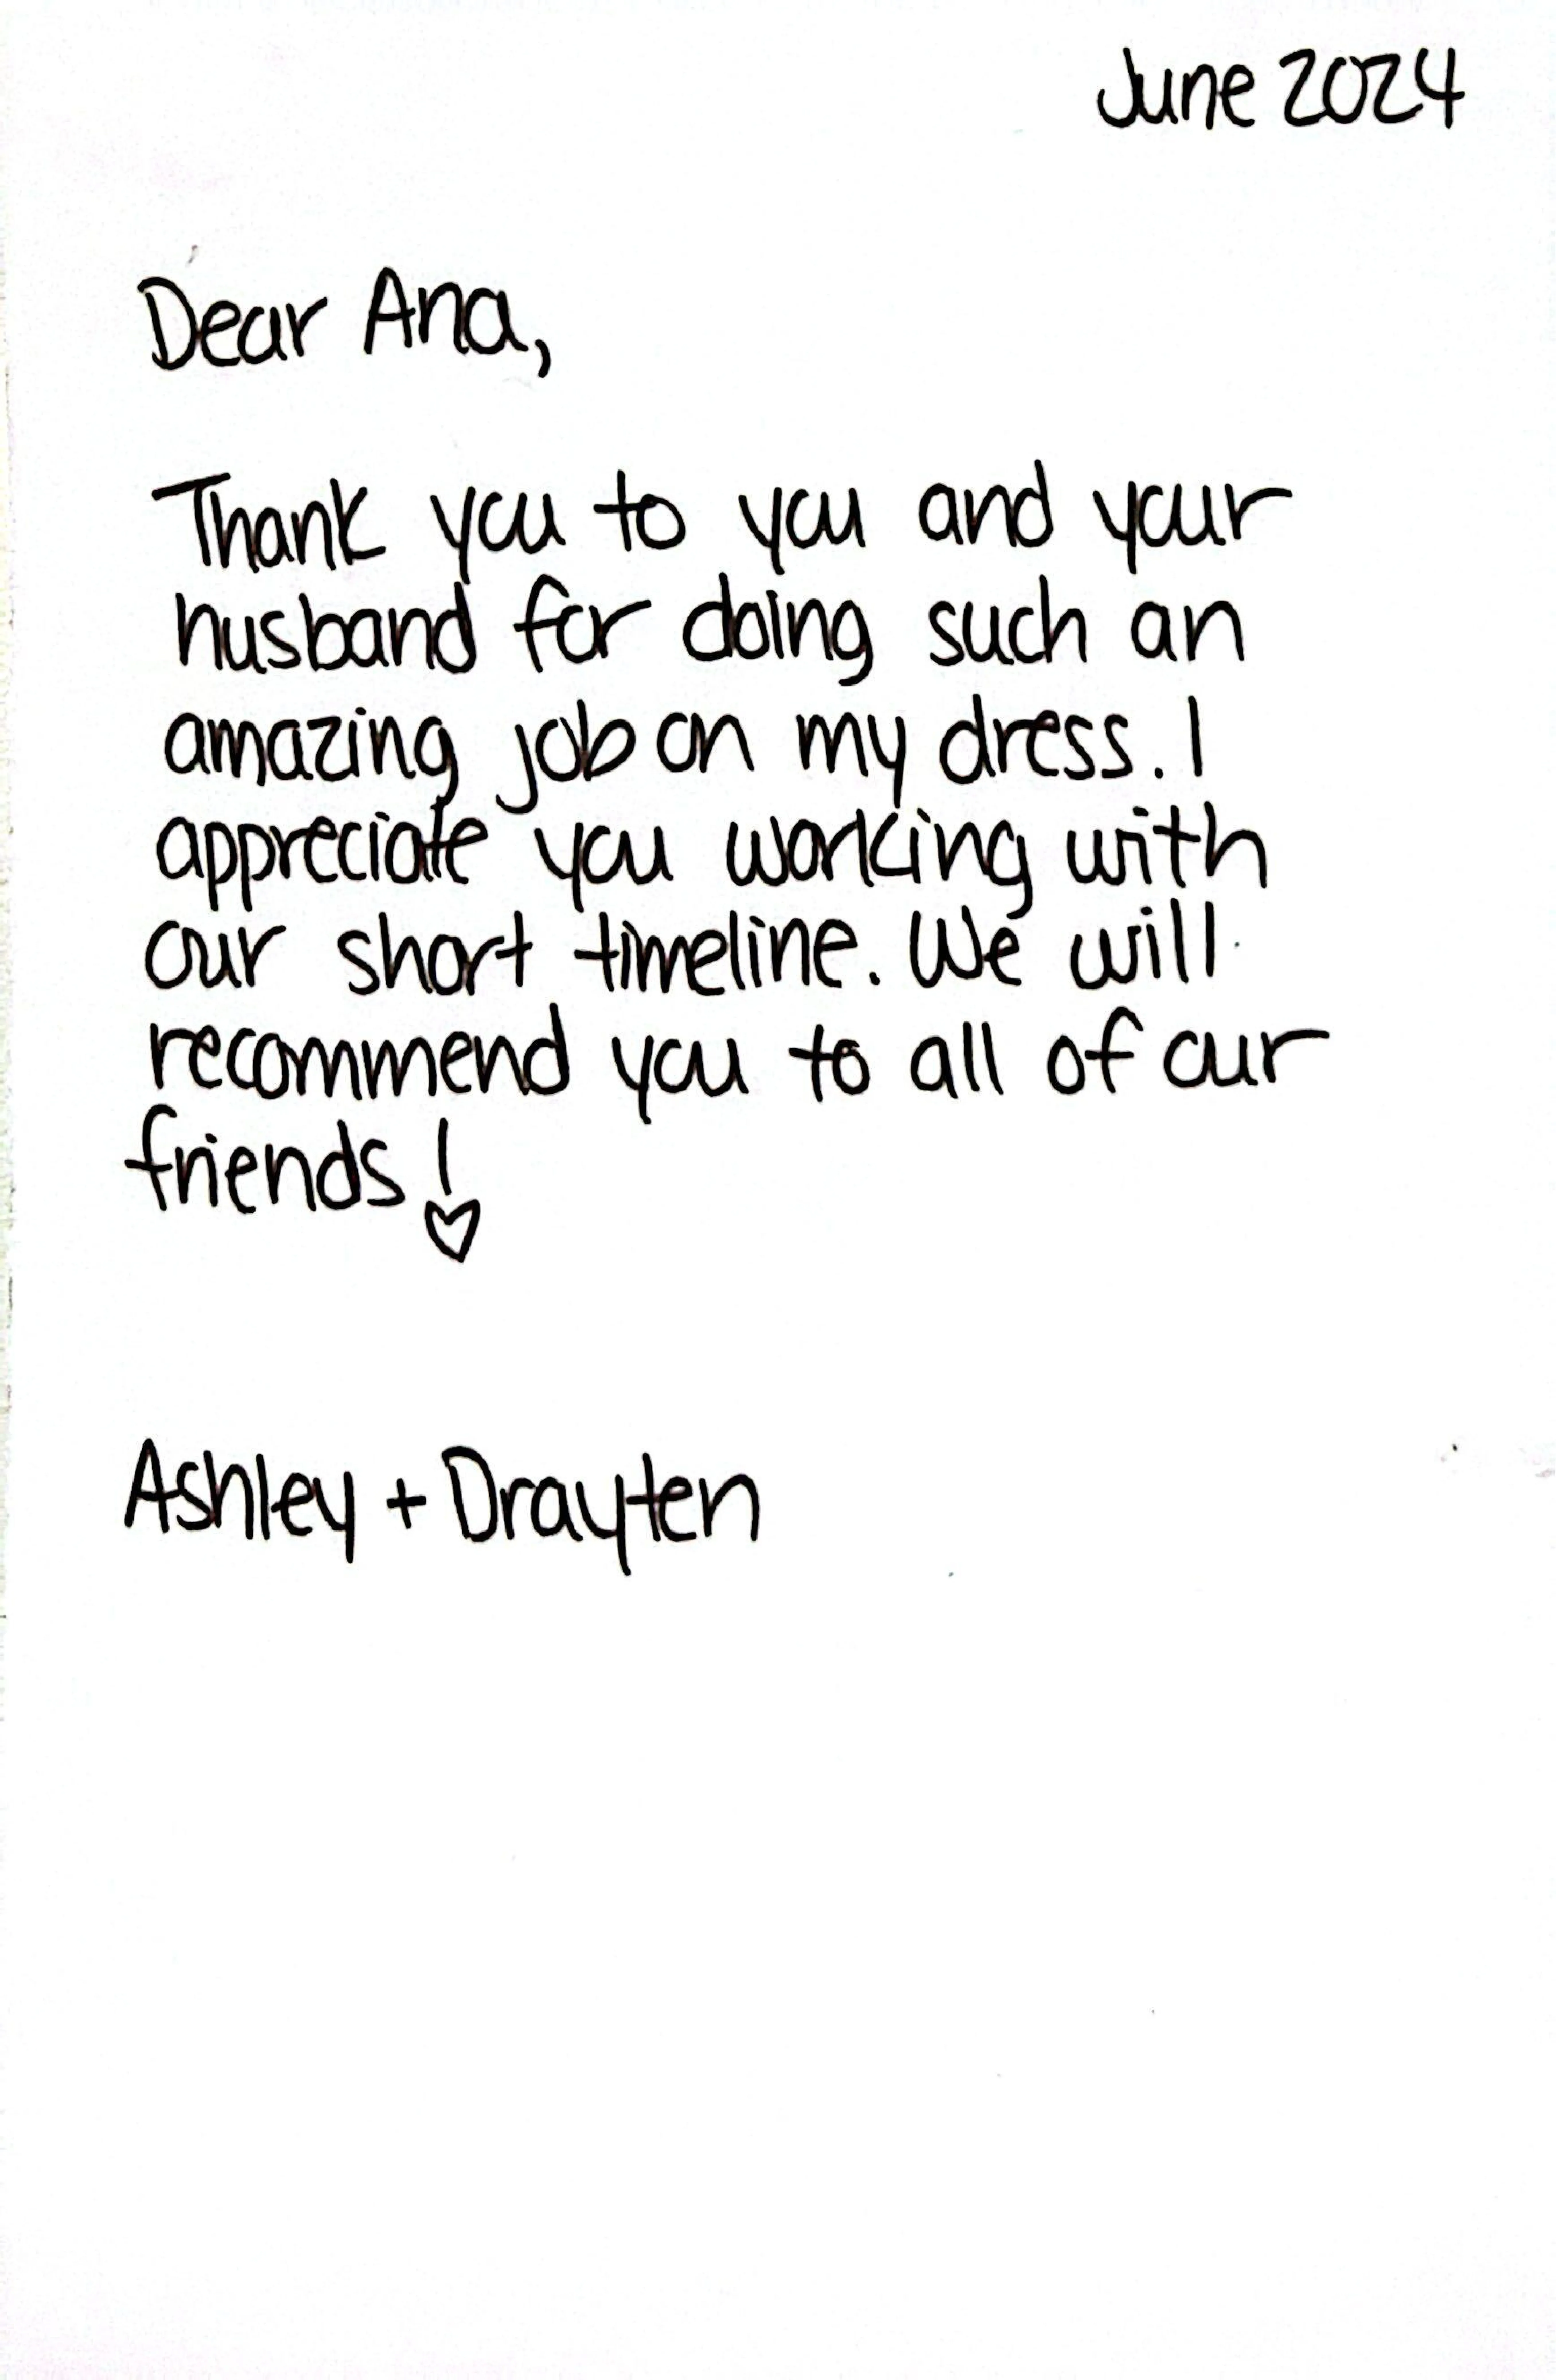 June 2024
Dear Ana,
Thank you to you and your
husband for doing such an
amazing job on my dress. I
appreciate you working with
our short timeline. We will
recommend you to all of our
friends!
Ashley + Drayten